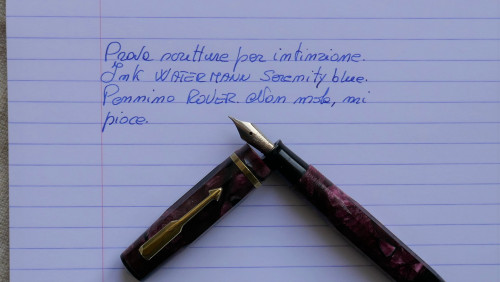 Prova scritture per intinzione.
Ink WATERMANN Serenity blue.
Pennino ROVER. Non male, mi
piace.